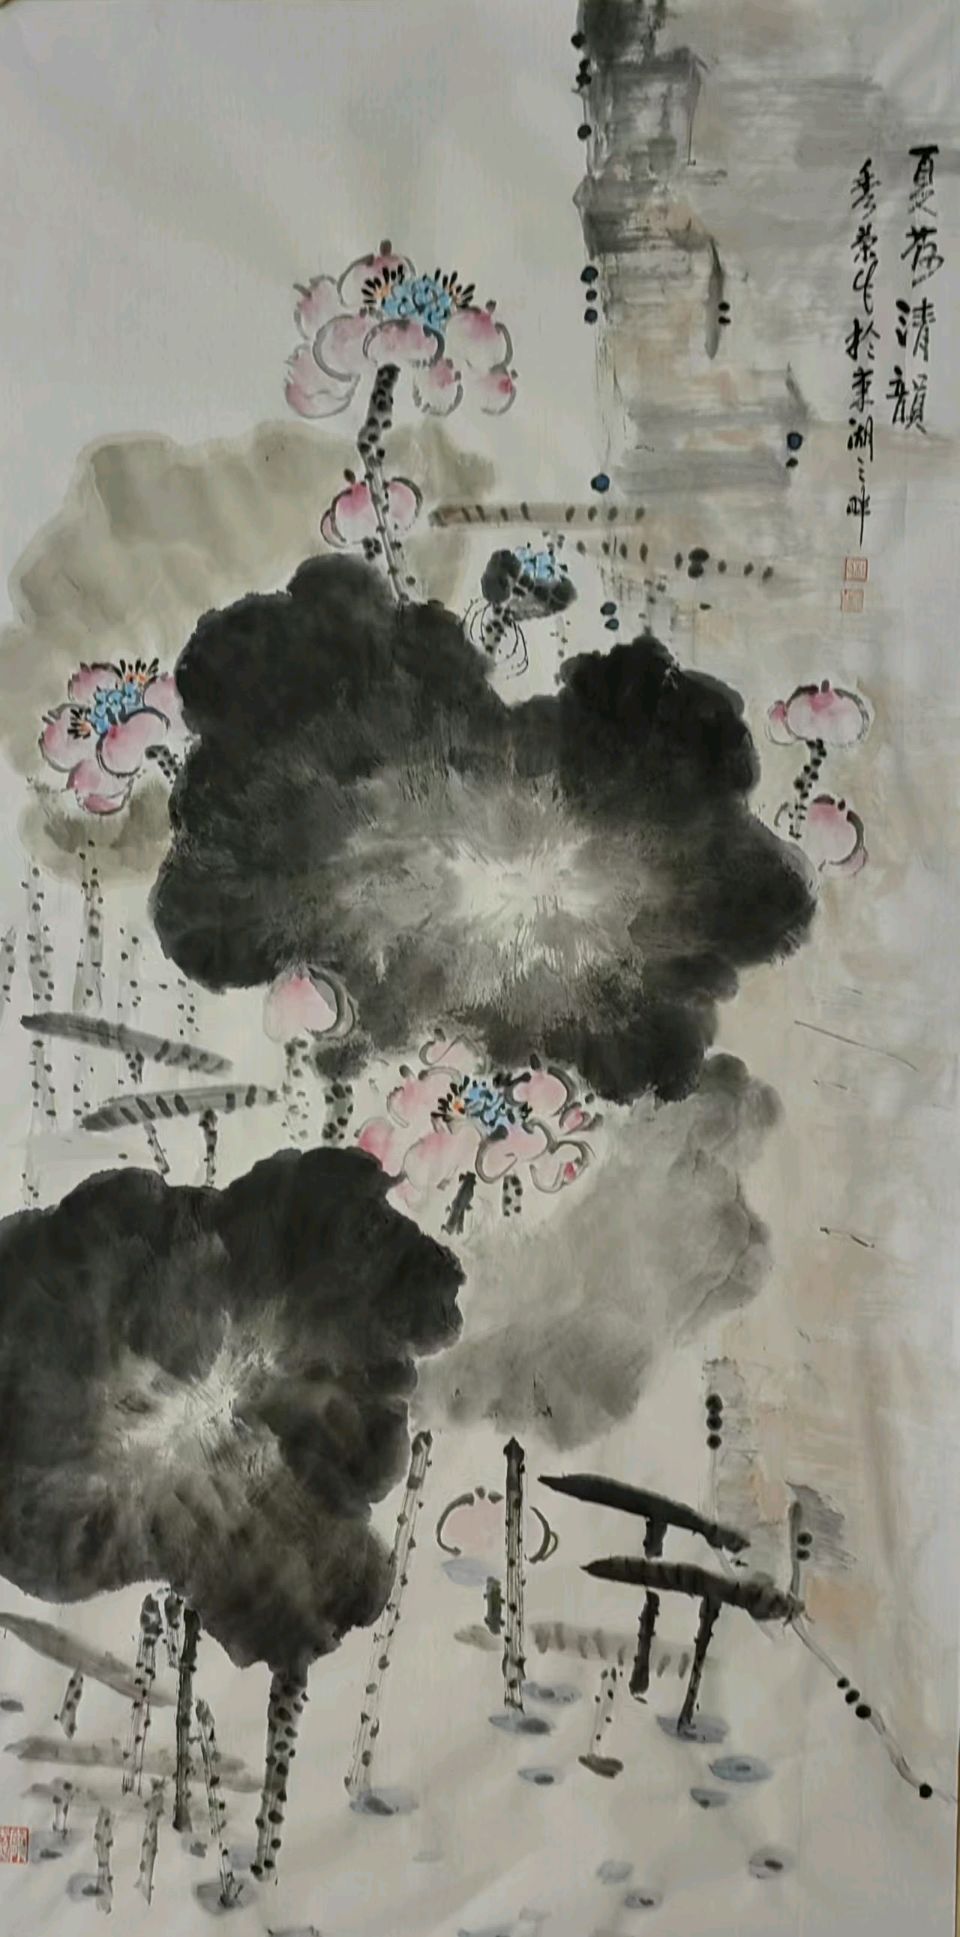 夏荷清韻
秀荣作於東湖之畔